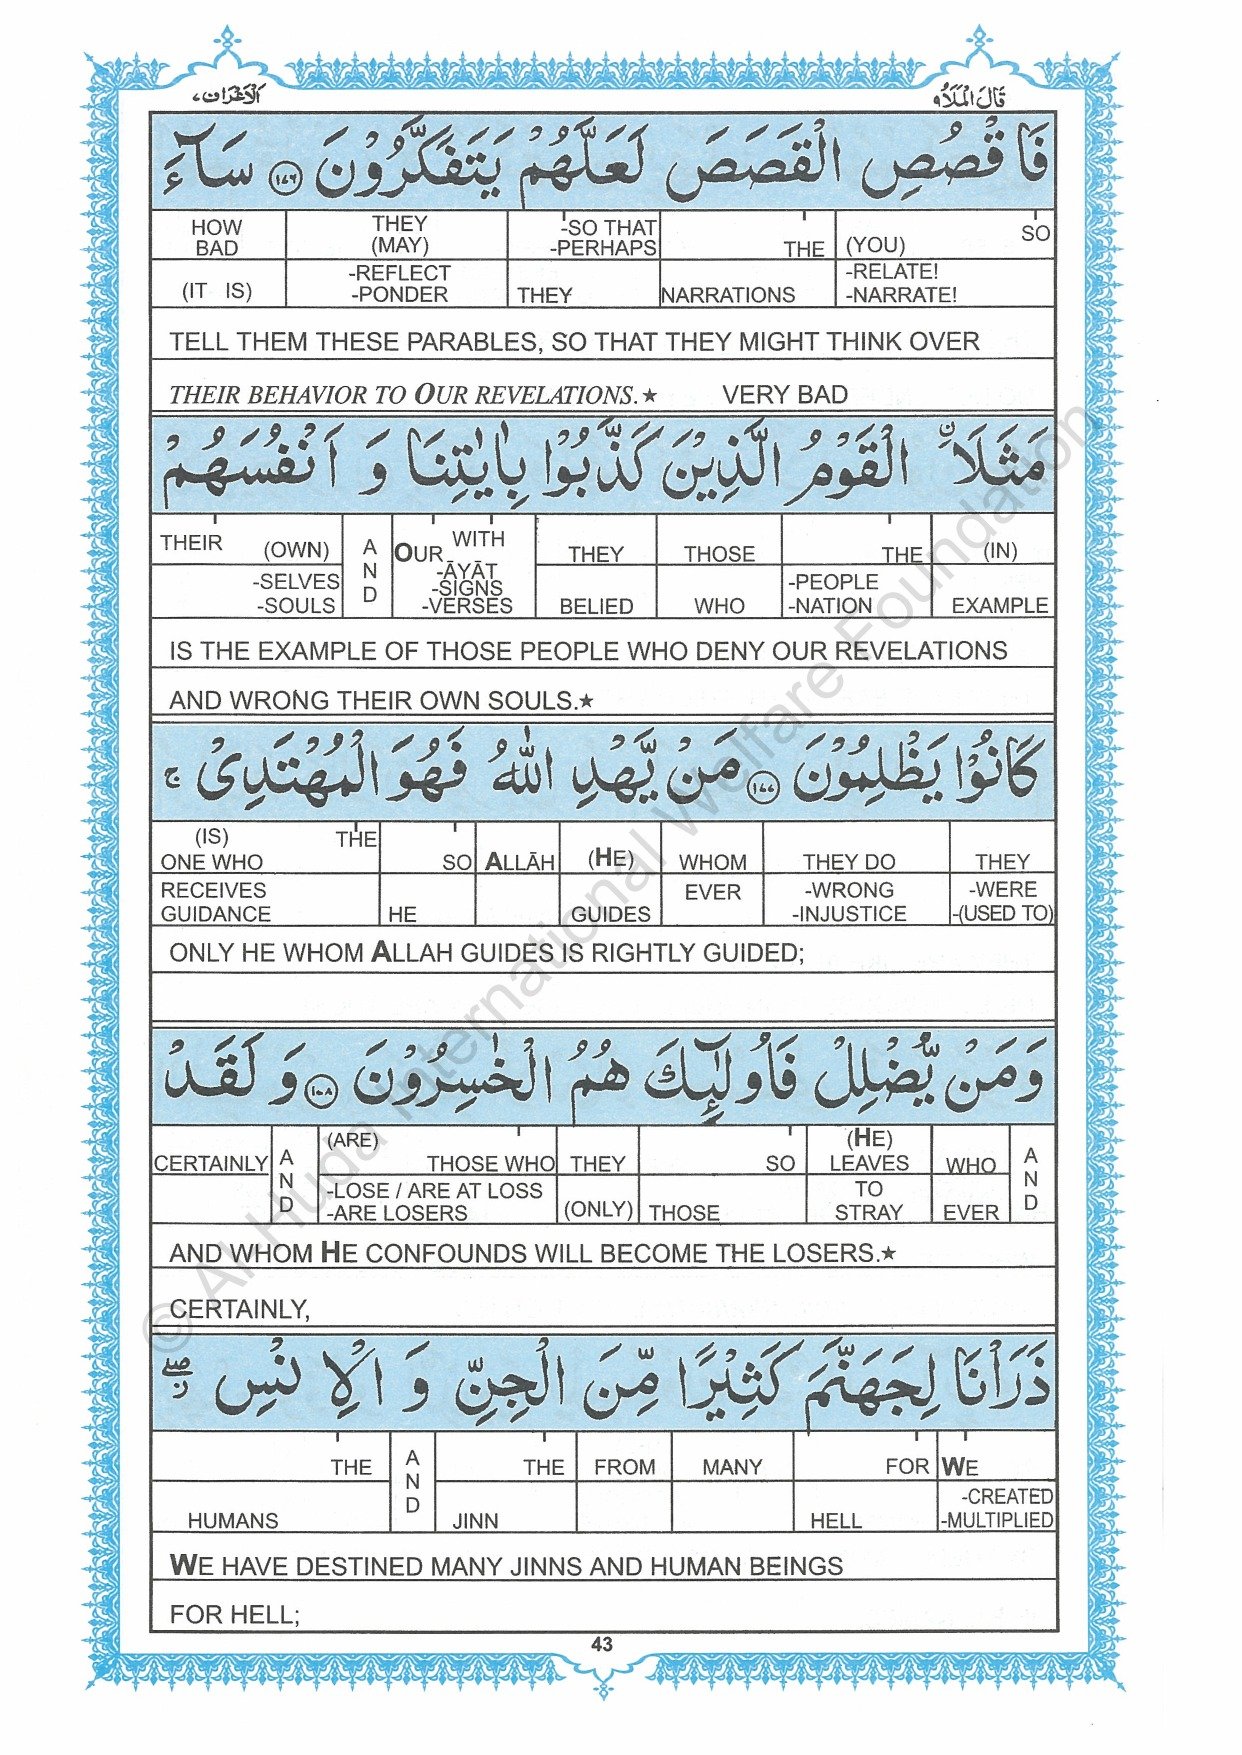 قَالَ الْمَلَاُ ٩
اَلْاَعْرَاف ٧
فَاقْصُصِ الْقَصَصَ لَعَلَّهُمْ يَتَفَكَّرُوْنَ ١٧٦ سَآءَ
SO THE -SO THAT THEY HOW
(YOU) -PERHAPS (MAY) BAD
-RELATE! NARRATIONS THEY -REFLECT (IT IS)
-NARRATE! -PONDER
TELL THEM THESE PARABLES, SO THAT THEY MIGHT THINK OVER
THEIR BEHAVIOR TO OUR REVELATIONS.★ VERY BAD
مَثَلَاۨ الْقَوْمُ الَّذِيْنَ كَذَّبُوْا بِاٰيٰتِنَا وَ اَنْفُسَهُمْ
(IN) THE THOSE THEY WITH AND THEIR
EXAMPLE -PEOPLE WHO BELIED OUR (OWN)
-NATION -ĀYĀT -SELVES
-SIGNS -SOULS
-VERSES
IS THE EXAMPLE OF THOSE PEOPLE WHO DENY OUR REVELATIONS
AND WRONG THEIR OWN SOULS.★
كَانُوْا يَظْلِمُوْنَ ١٧٧ مَنْ يَّهْدِ اللّٰهُ فَهُوَ الْمُهْتَدِىْ ج
THEY THEY DO WHOM (HE) ALLĀH SO THE (IS)
-WERE -WRONG EVER GUIDES HE ONE WHO
-(USED TO) -INJUSTICE RECEIVES
GUIDANCE
ONLY HE WHOM ALLAH GUIDES IS RIGHTLY GUIDED;
وَ مَنْ يُّضْلِلْ فَاُولٰٓئِكَ هُمُ الْخٰسِرُوْنَ ١٧٨ وَ لَقَدْ
AND WHO (HE) SO THEY (ARE) AND CERTAINLY
EVER LEAVES THOSE (ONLY) THOSE WHO
TO -LOSE / ARE AT LOSS
STRAY -ARE LOSERS
AND WHOM HE CONFOUNDS WILL BECOME THE LOSERS.★
CERTAINLY,
ذَرَاْنَا لِجَهَنَّمَ كَثِيْرًا مِّنَ الْجِنِّ وَ الْاِنْسِ صلے ز
WE FOR MANY FROM THE AND THE
-CREATED HELL JINN HUMANS
-MULTIPLIED
WE HAVE DESTINED MANY JINNS AND HUMAN BEINGS
FOR HELL;
43
© Al Huda International Welfare Foundation